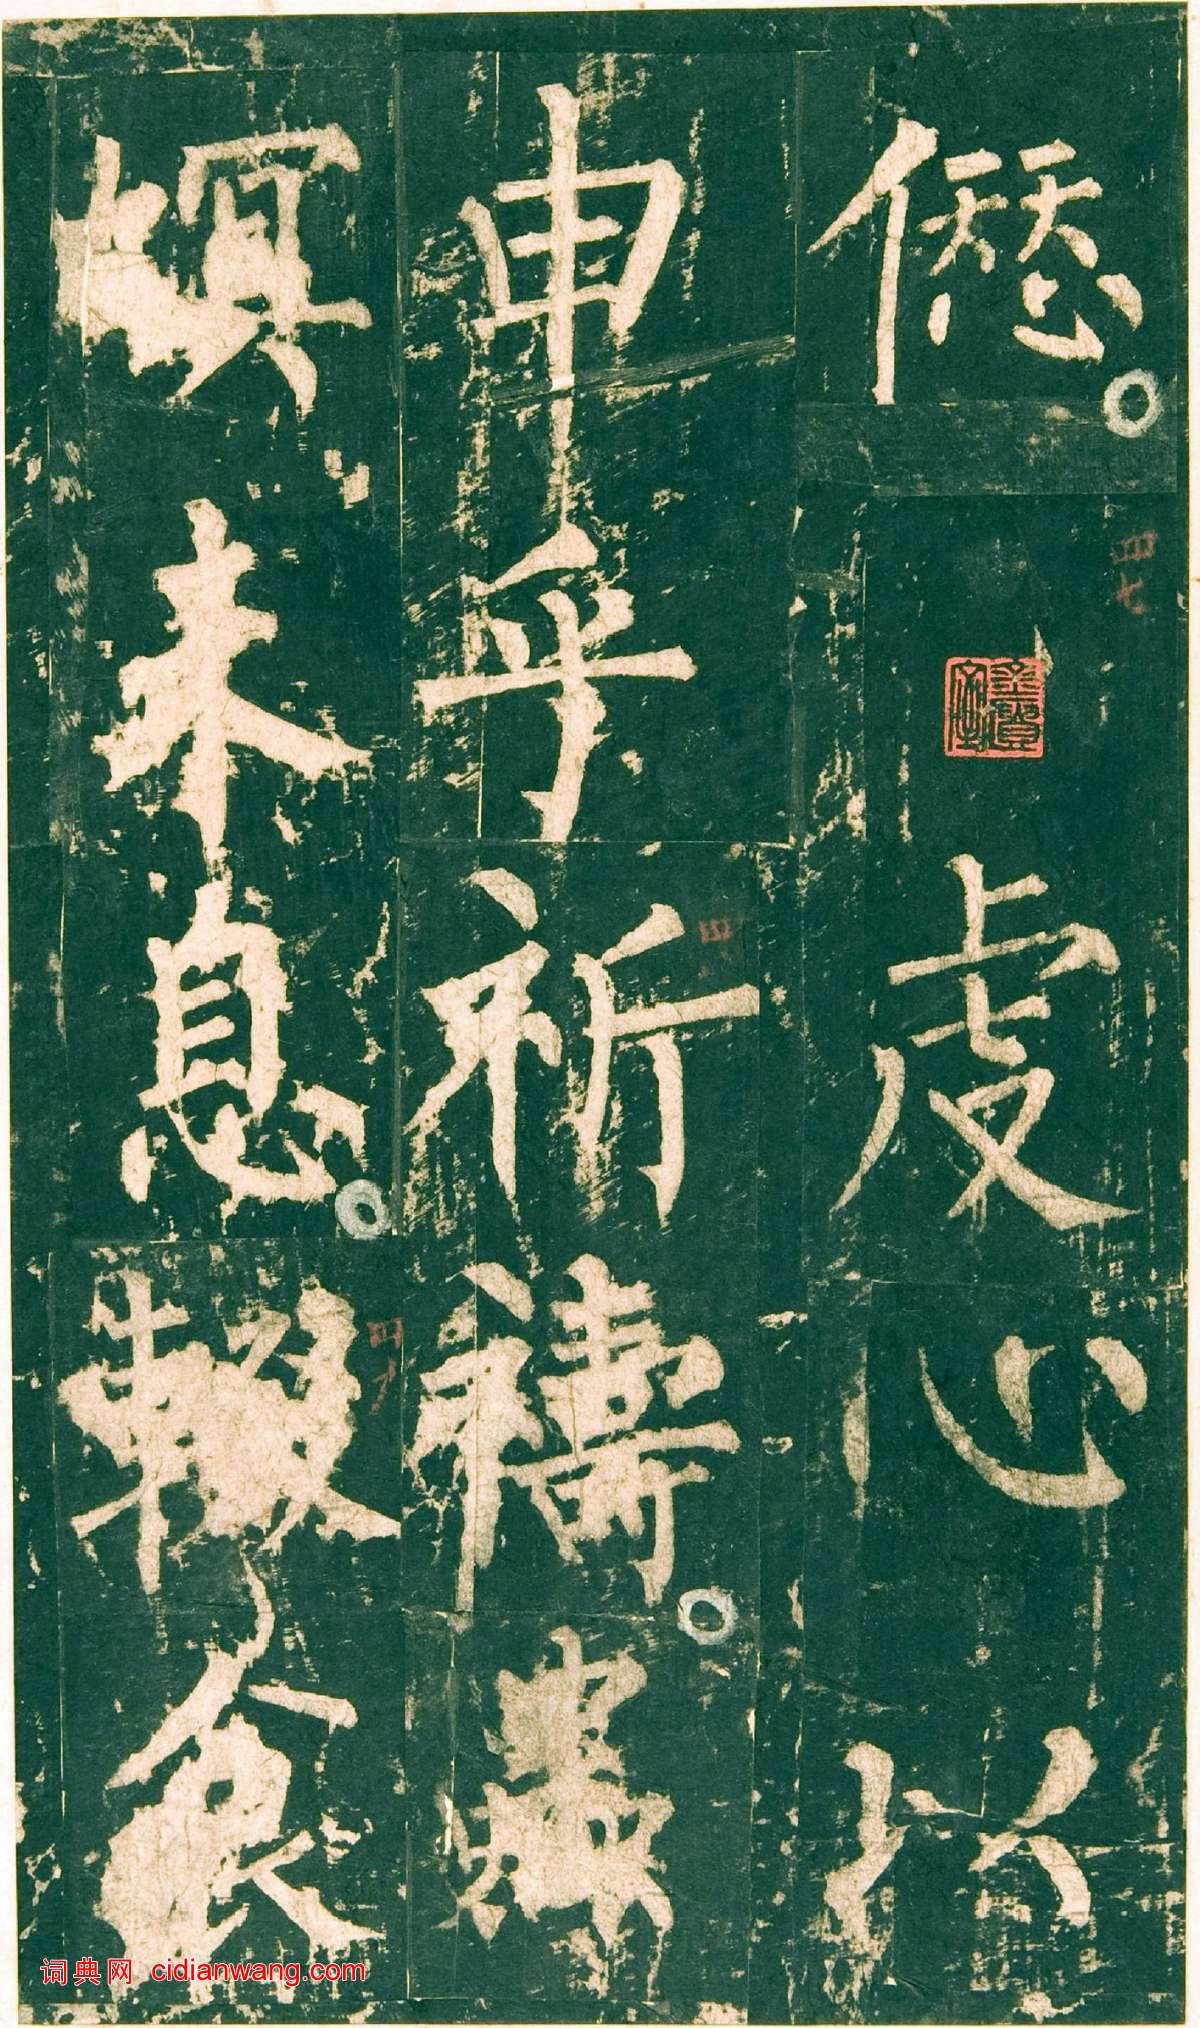 僁虔心
申乎祈禱蟲
螟未息輟食
词典网 cidianwang.com